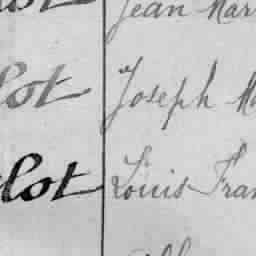 Jean Mar
lot Joseph Ma
lot Louis Fran